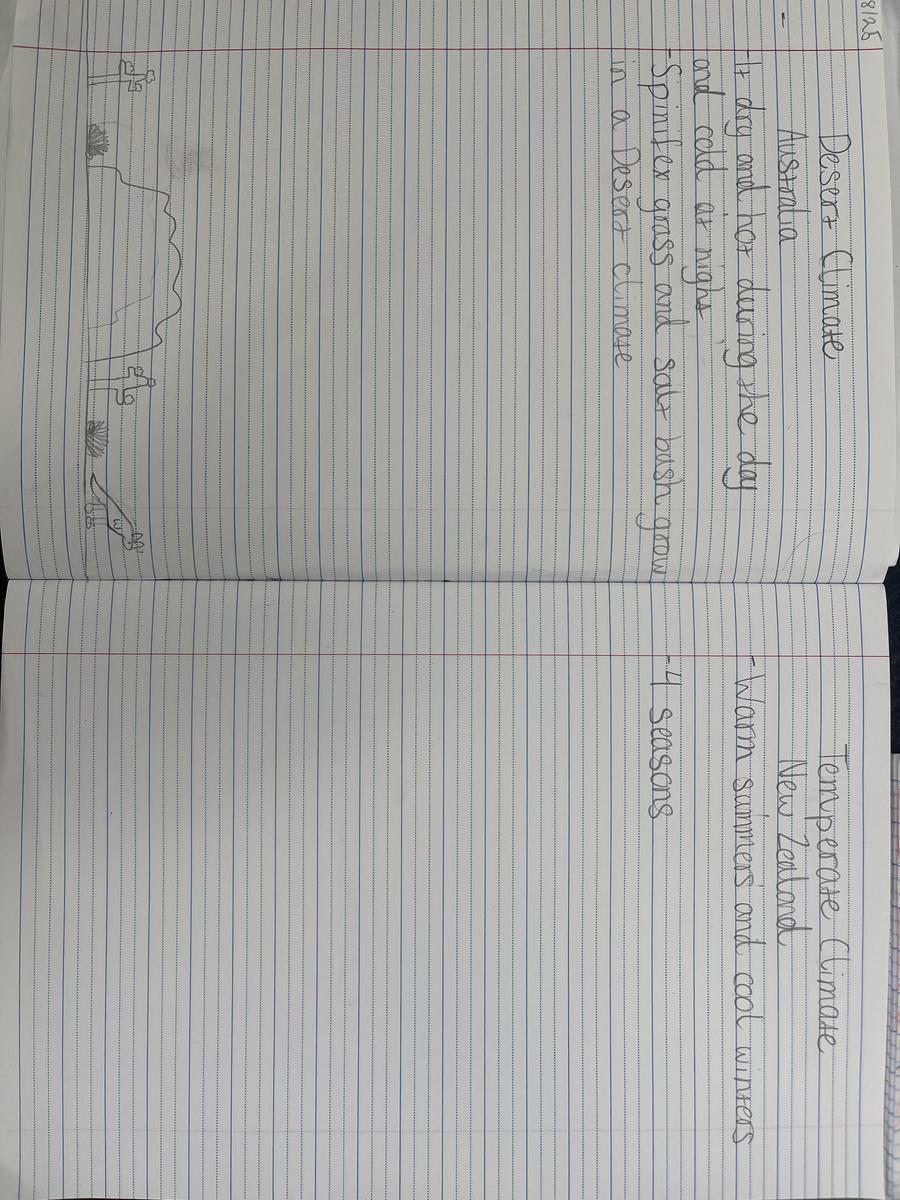 8/25
Desert Climate
Australia
-
-It dry and hot during the day
and cold at night
-Spinifex grass and salt bush grow
in a Desert climate
Temperate Climate
New Zealand
-Warm summers and cool winters
-4 seasons